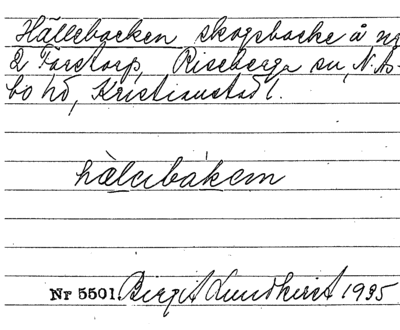 Hällebacken skogsbacke å nr
2 Färstorp, Riseberga sn, N. Ås-
bo hd, Kristianstad l.
hälebákem
Nr 5501. Birgit Lundkvist 1935